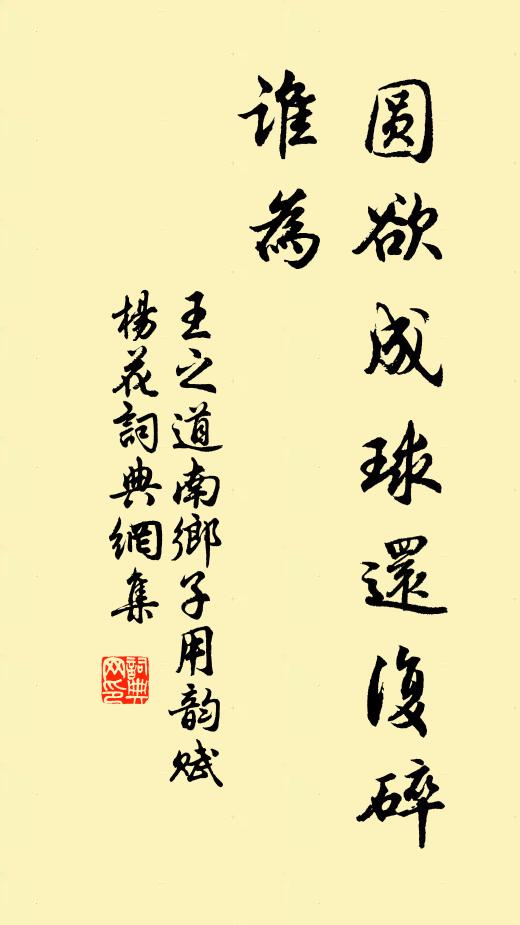 圓欲成球還復碎
誰為
王之道南鄉子用韵賦
楊花詞典網集
詞典网印